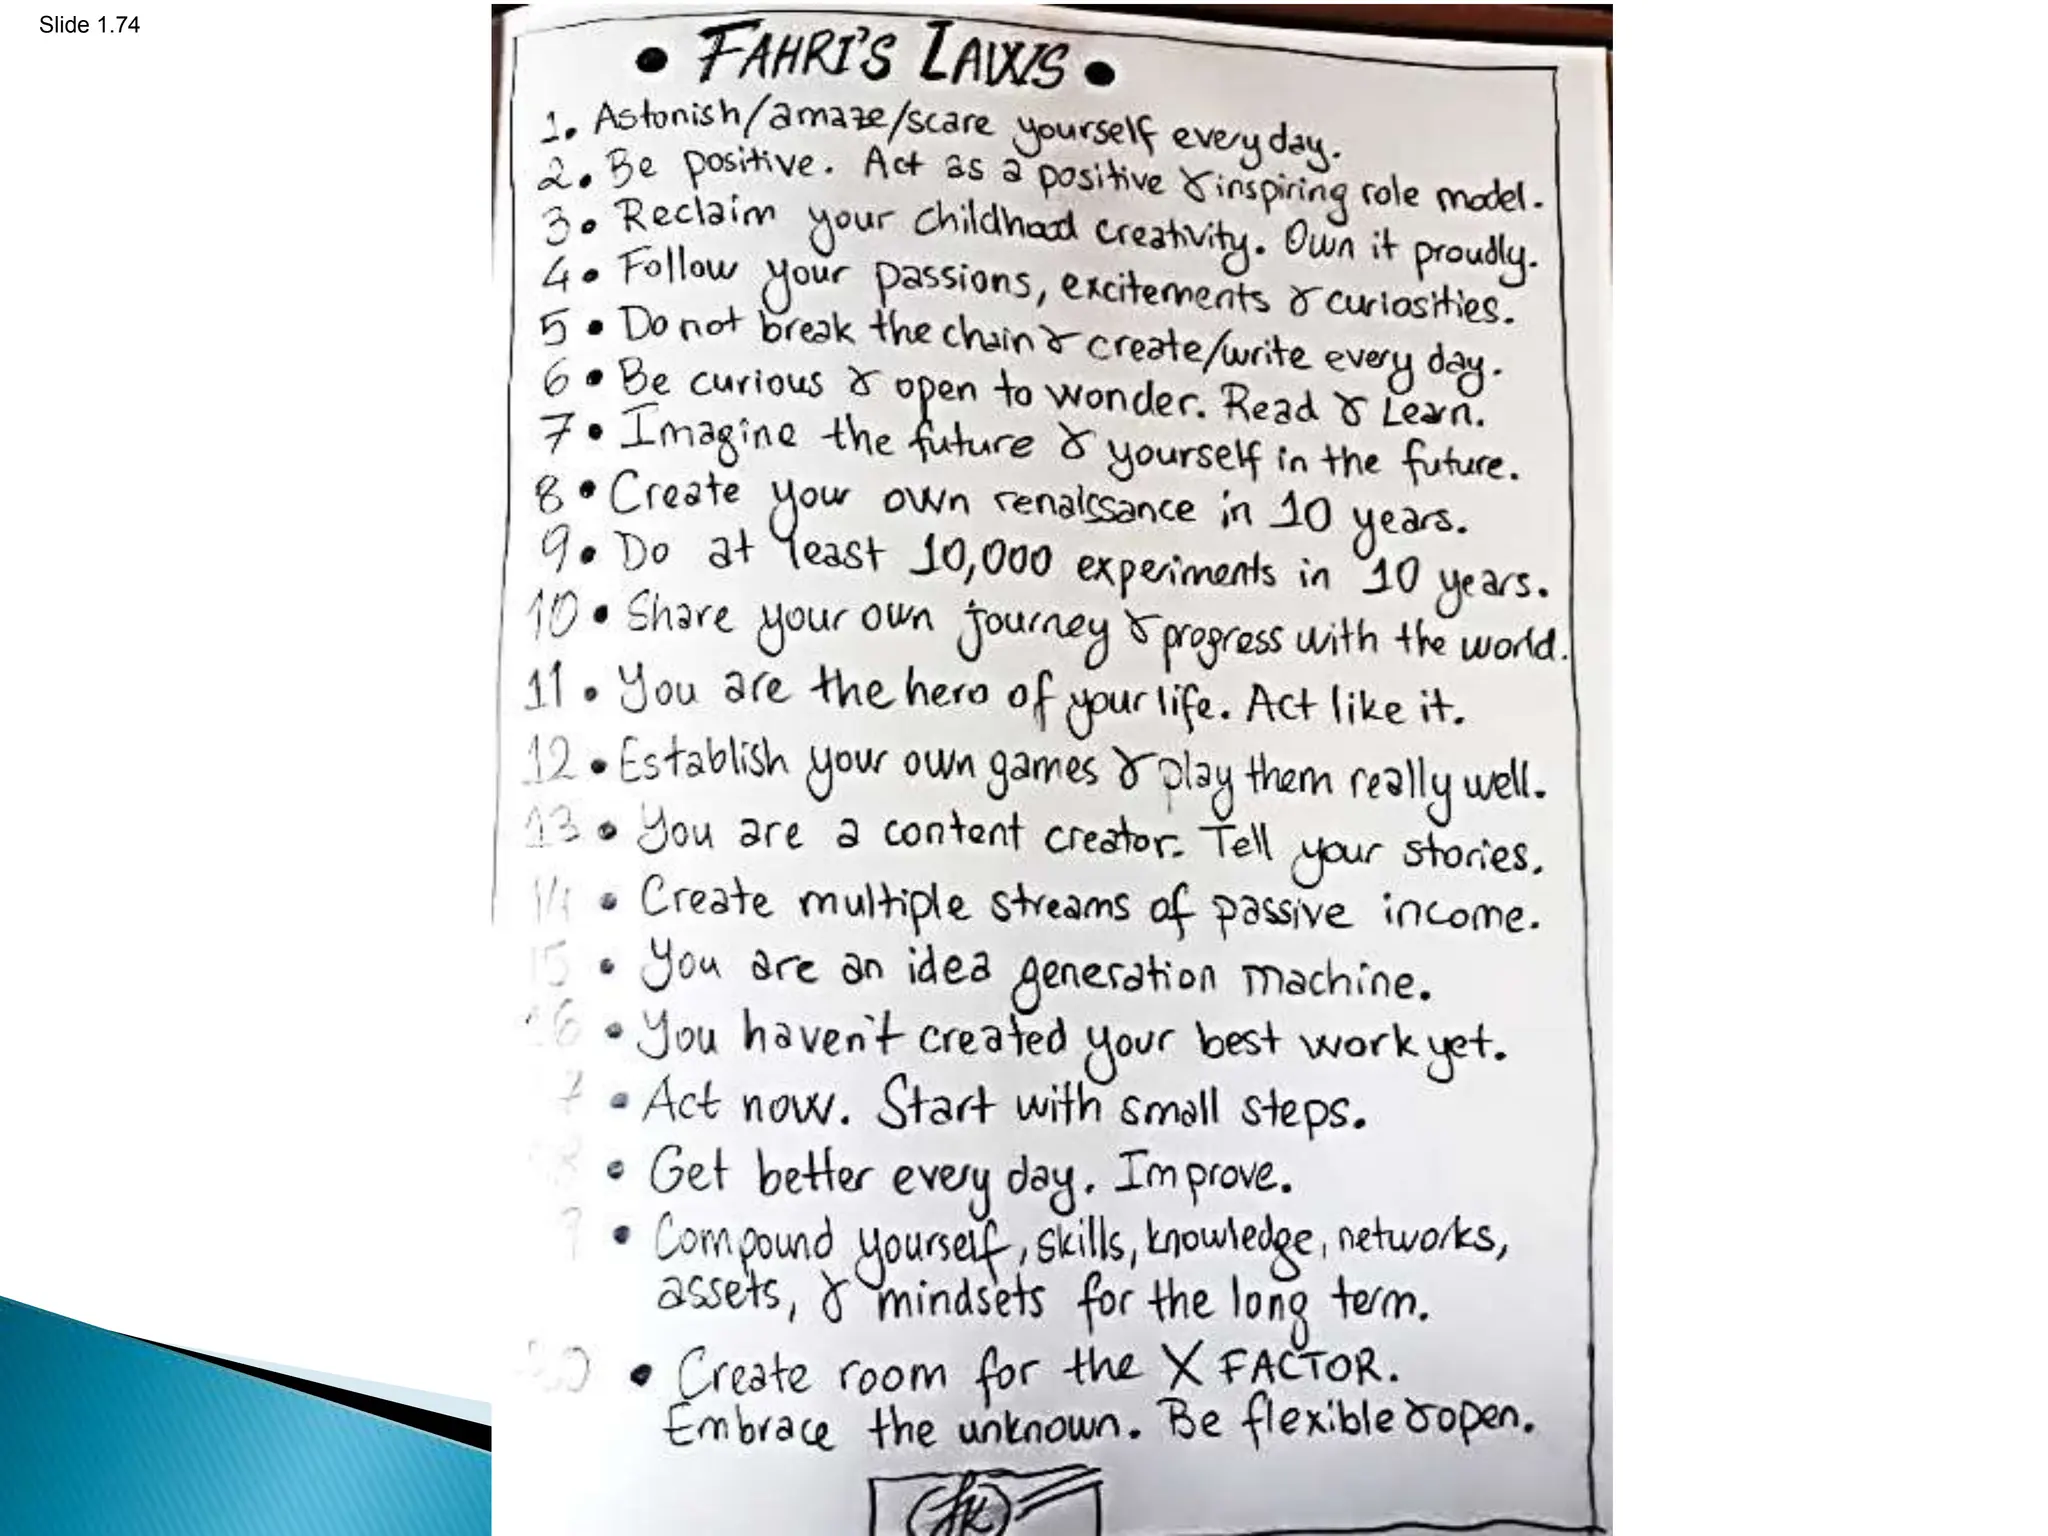 Slide 1.74
• FAHRI'S LAWS •
1. Astonish/amaze/scare yourself every day.
2. Be positive. Act as a positive & inspiring role model.
3. Reclaim your childhood creativity. Own it proudly.
4. Follow your passions, excitements & curiosities.
5. Do not break the chain & create/write every day.
6. Be curious & open to wonder. Read & Learn.
7. Imagine the future & yourself in the future.
8. Create your own renaissance in 10 years.
9. Do at least 10,000 experiments in 10 years.
10. Share your own journey & progress with the world.
11. You are the hero of your life. Act like it.
12. Establish your own games & play them really well.
13. You are a content creator. Tell your stories.
14. Create multiple streams of passive income.
15. You are an idea generation machine.
16. You haven't created your best work yet.
7. Act now. Start with small steps.
8. Get better every day. Improve.
9. Compound yourself, skills, knowledge, networks,
assets, & mindsets for the long term.
20. Create room for the X FACTOR.
Embrace the unknown. Be flexible & open.